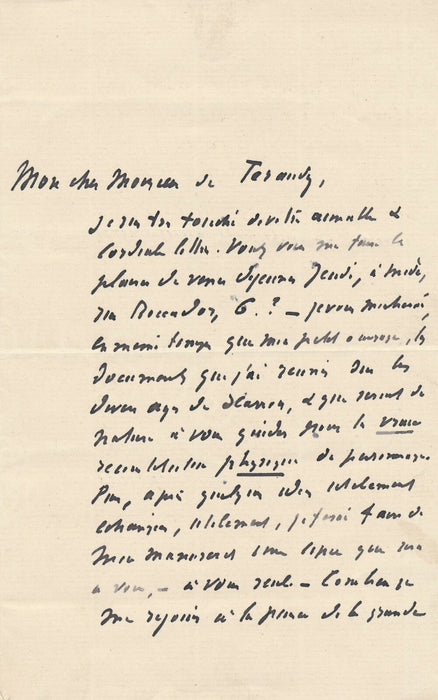 Mon cher Monsieur de Feraudy,
je suis très touché de votre aimable &
cordiale lettre. Voulez vous me faire le
plaisir de venir déjeuner Jeudi, à midi,
rue Boccador, 6. ? – je vous montrerai,
en même temps que mon petit ouvrage, les
documents que j'ai réunis sur les
divers ages de & qui seront de
nature à vous guider pour la vraie
reconstitution physique du personnage.
Puis, après quelques idées utilement
échangées, utilement, je ferai faire de
mon manuscrit une copie que sera
à vous, – à vous seul – Combien je
me réjouis à la pensée de la grande